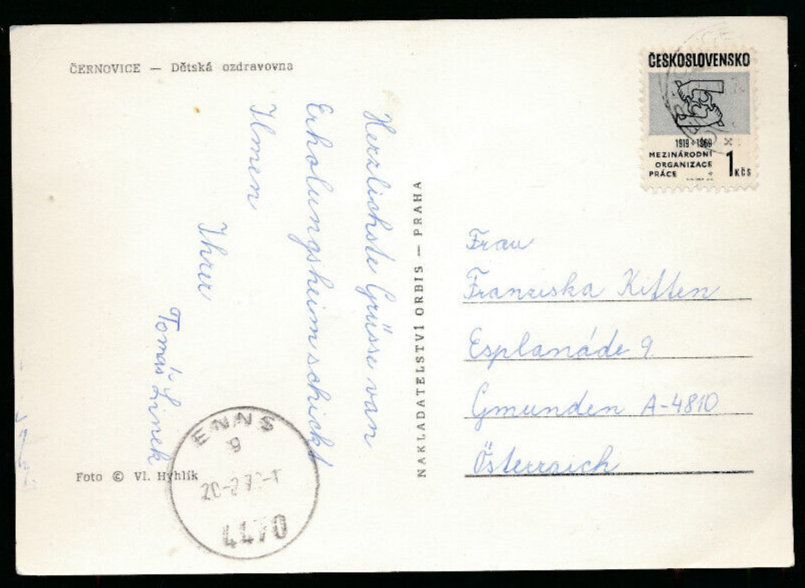 ČERNOVICE — Dětská ozdravovna
Herzlichste Grüsse van
Erholungsheim schickt
Ilmen
Ihrer
Tomáš Linek
Foto © Vl. Hyhlík
ENNS
9
4470
NAKLADATELSTVÍ ORBIS — PRAHA
ČESKOSLOVENSKO
1919 + 1969
MEZINÁRODNÍ
ORGANIZACE
PRÁCE
1 Kčs
Frau
Franziska Kitten
Esplanáde 9
Gmunden A-4810
Österraich